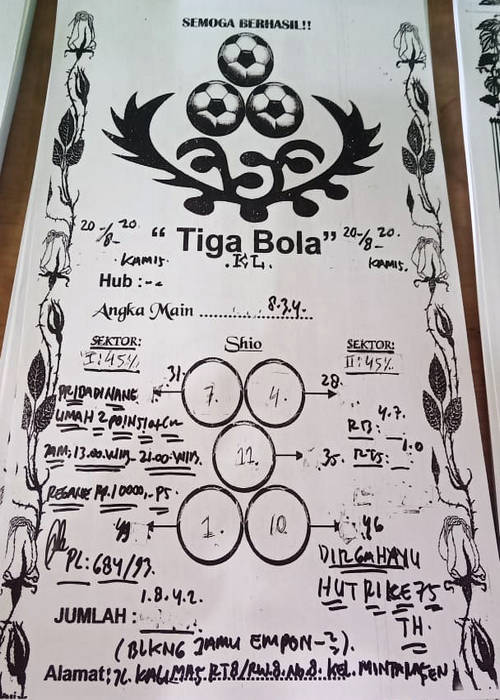 SEMOGA BERHASIL!!
20-/8- 20. “ Tiga Bola” 20-/8- 20.
KAMIS. .KL. KAMIS.
Hub :-
Angka Main .......... 8.3.4.
SEKTOR: Shio SEKTOR:
I:45% II:45%
31. 7. 4. 28.
UMAH 2 POIN
4.7.
11. 35.
JAM: 13.00.WIB- 21.00.WIB.
1.0
REGANE Rp.10000,-
1. 10. 46
PL: 684/93.
DIRGAHAYU
HUT RI KE 75
TH.
1.8.4.2.
JUMLAH :
(BLKNG JAMU EMPON-2).
Alamat: JL. KALIMAS. RT8/RW.8. No.8. KEL. MINTARAGEN